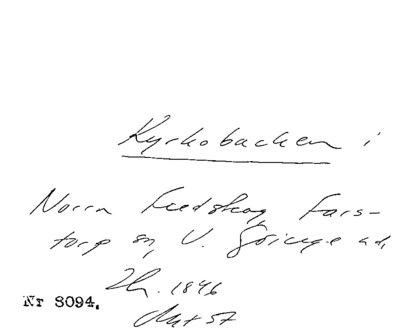 Kyrkobacken i
Norra Ludskog, Fars-
torp sn, V. Göinge hd,
1846
Nr 8094.